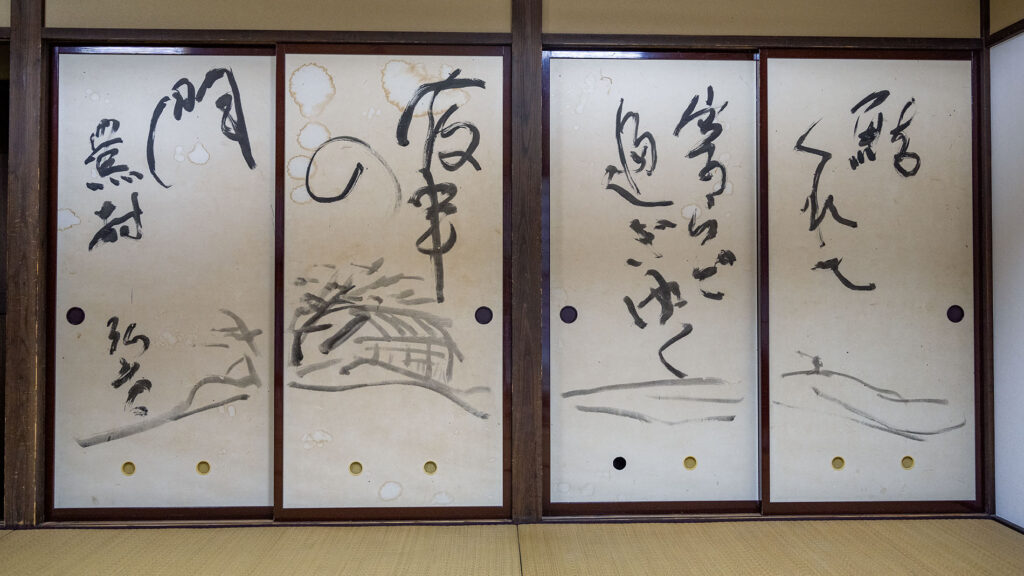 鮎
くれて
寄らで
過ぎゆく
夜半
の
門
蕪村